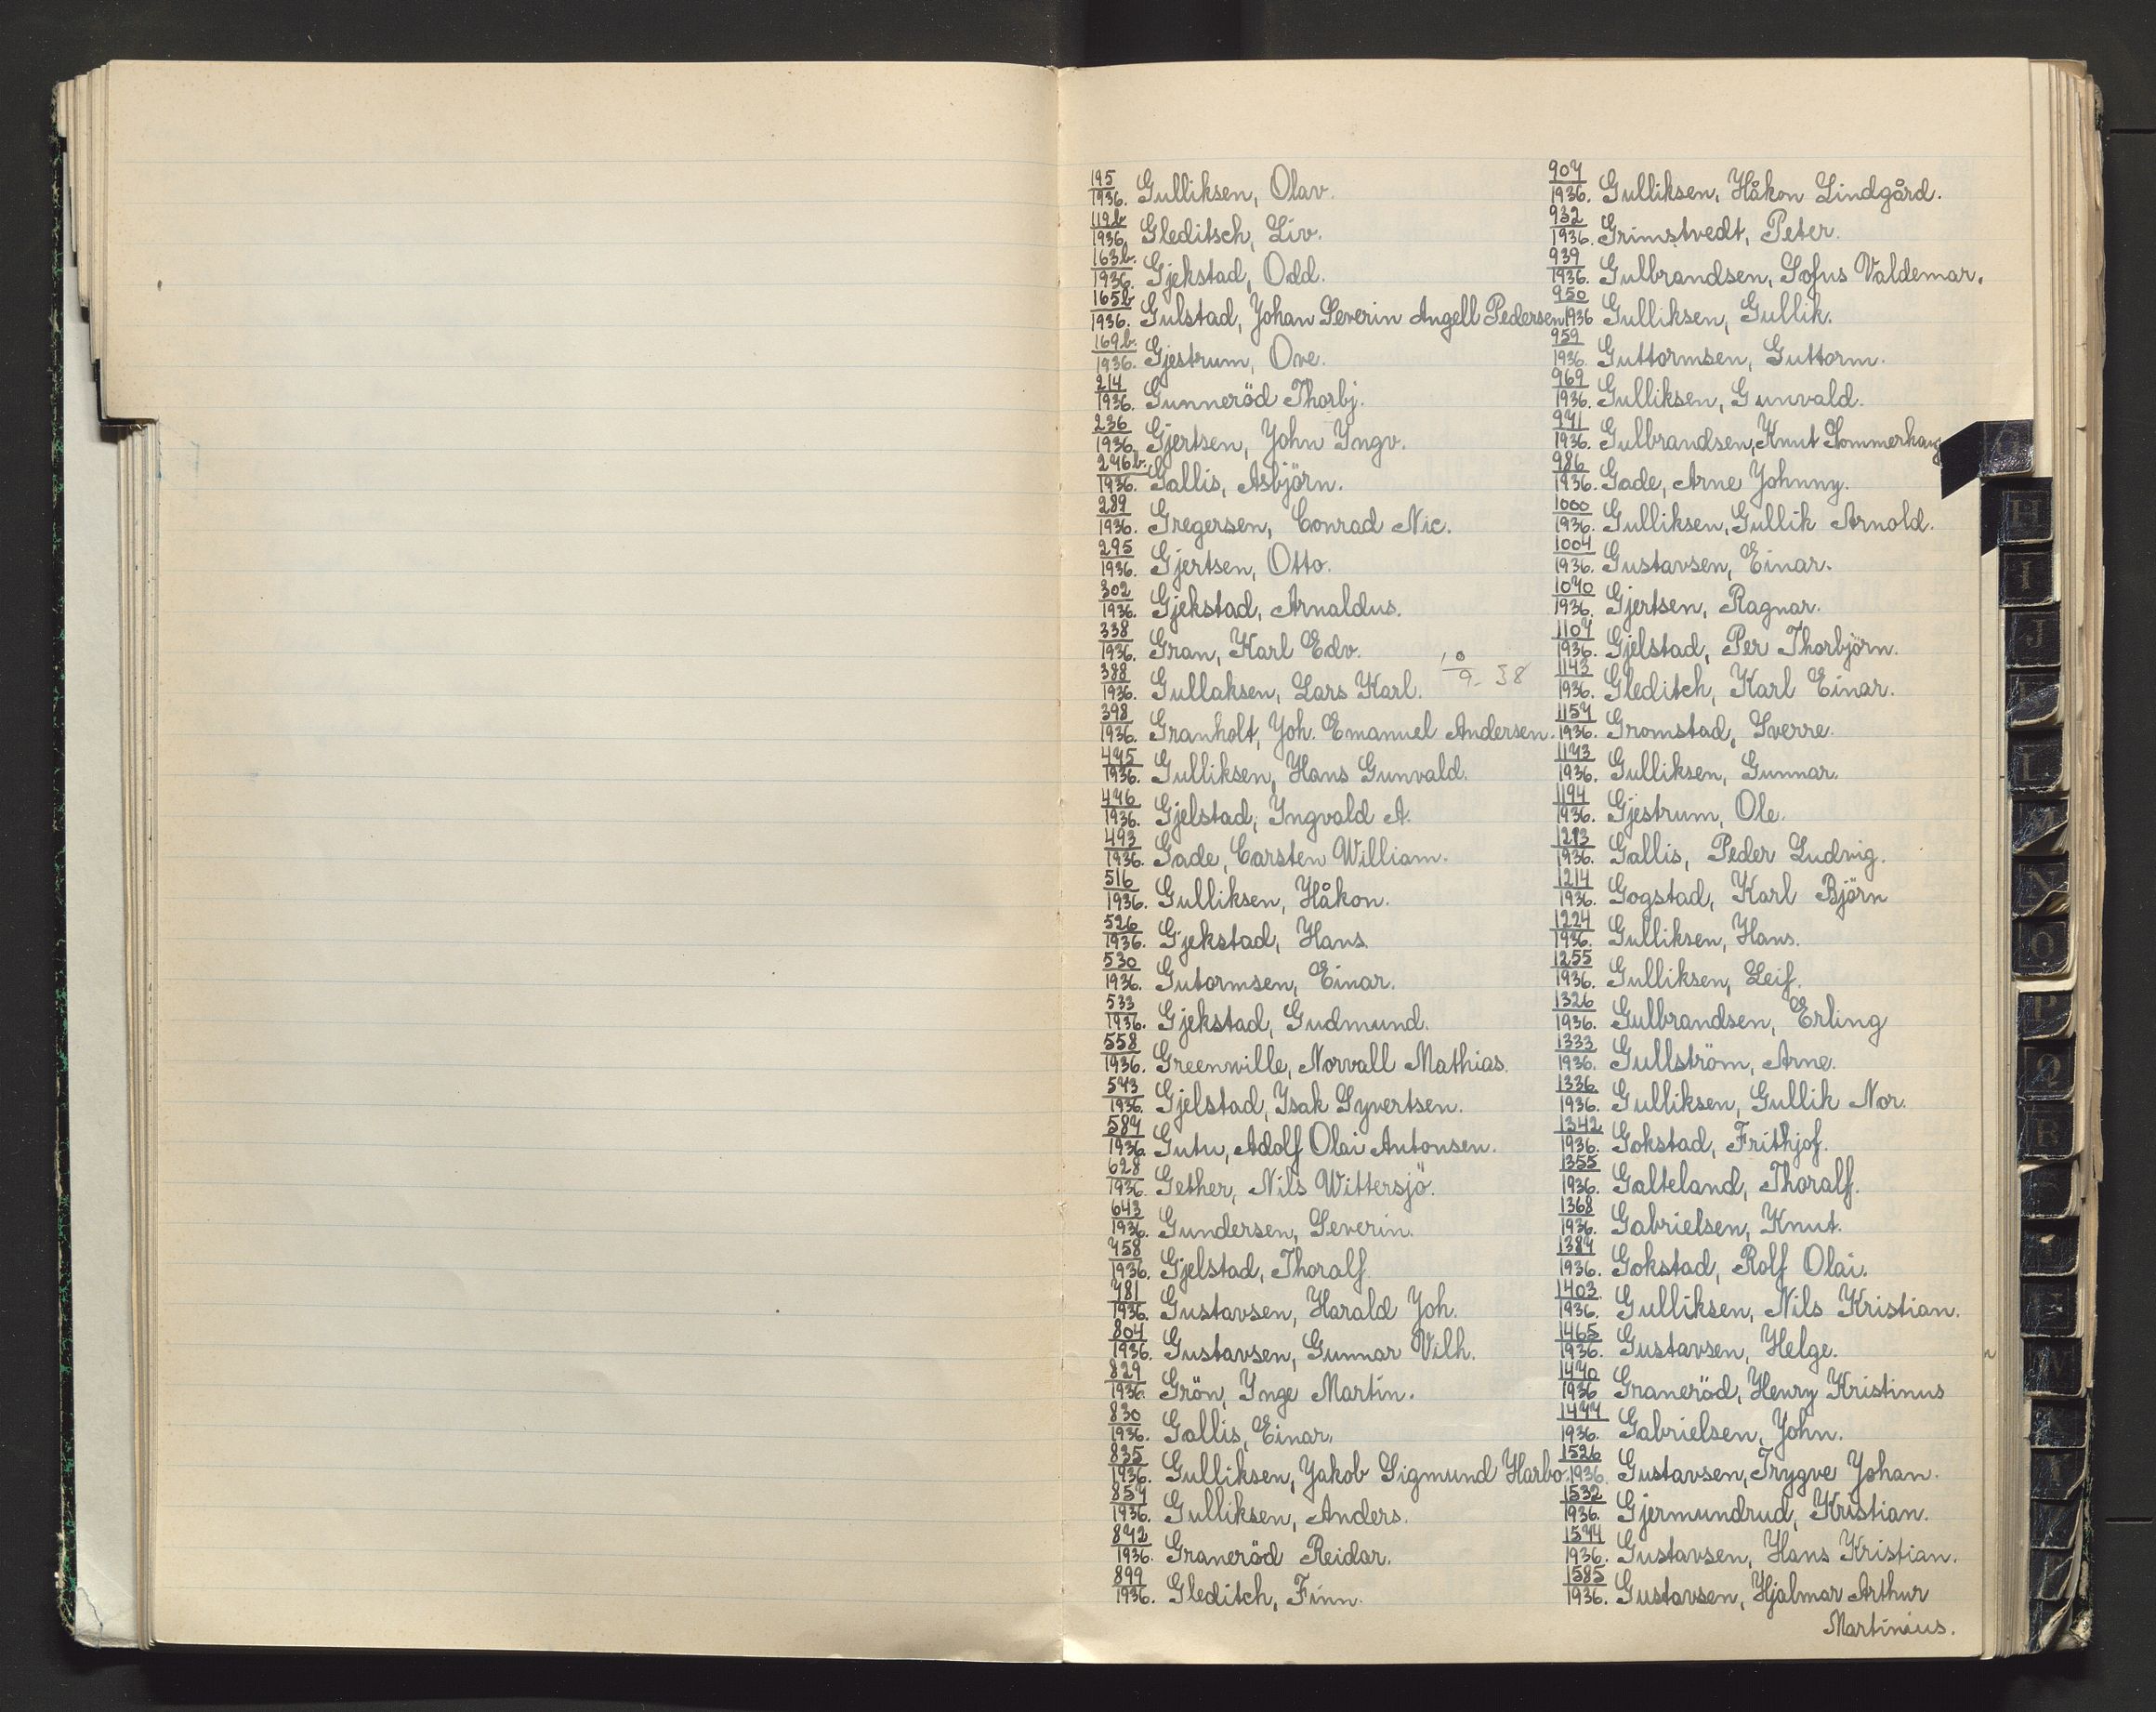 195/1936. Gulliksen, Olav.
119b/1936. Gleditsch, Liv.
163b./1936. Gjekstad, Odd.
165b/1936. Gulstad, Johan Severin Angell Pedersen
169b./1936. Gjestrum, Ove.
214/1936. Gunneröd Thorbj.
236/1936. Gjertsen, John Yngv.
246b./1936. Gallis, Asbjörn.
287/1936. Gregersen, Conrad Nic.
295/1936. Gjertsen, Otto.
302/1936. Gjekstad, Arnaldus.
338/1936. Gran, Karl Edv.
388/1936. Gullaksen, Lars Karl.
398/1936. Granholt, Joh. Emanuel Andersen.
475/1936. Gulliksen, Hans Gunvald.
476/1936. Gjelstad, Yngvald A.
493/1936. Gade, Carsten William.
516/1936. Gulliksen, Håkon.
526/1936. Gjekstad, Hans.
530/1936. Gutormsen, Einar.
533/1936. Gjekstad, Gudmund.
558/1936. Greenwille, Norvall Mathias.
573/1936. Gjelstad, Isak Syvertsen.
587/1936. Gutu, Adolf Olai Antonsen.
628/1936. Gether, Nils Wittersjö.
643/1936. Gundersen, Severin.
758/1936. Gjelstad, Thoralf.
781/1936. Gustavsen, Harald Joh.
804/1936. Gustavsen, Gunnar Vilh.
829/1936. Grön, Ynge Martin.
830/1936. Gallis, Einar.
835/1936. Gulliksen, Jakob Sigmund Harbo.
857/1936. Gulliksen, Anders.
872/1936. Graneröd Reidar.
899/1936. Gleditch, Finn.
907/1936. Gulliksen, Håkon Lindgård.
932/1936. Grimstvedt, Peter.
939/1936. Gulbrandsen, Sofus Valdemar.
950/1936 Gulliksen, Gullik.
959/1936. Guttormsen, Guttorm.
969/1936. Gulliksen, Gunvald.
971/1936. Gulbrandsen, Knut Sommerhaug
986/1936. Gade, Arne Johnny.
1000/1936. Gulliksen, Gullik Arnold.
1004/1936. Gustavsen, Einar.
1070/1936. Gjertsen, Ragnar.
1107/1936. Gjelstad, Per Thorbjörn.
1143/1936. Gleditch, Karl Einar.
1157/1936. Gromstad, Sverre.
1173/1936. Gulliksen, Gunnar.
1194/1936. Gjestrum, Ole.
1213/1936. Gallis, Peder Ludvig.
1214/1936. Gogstad, Karl Björn
1224/1936. Gulliksen, Hans.
1255/1936. Gulliksen, Leif.
1326/1936. Gulbrandsen, Erling
1333/1936. Gullström, Arne.
1336/1936. Gulliksen, Gullik Nor.
1342/1936. Gokstad, Frithjof.
1355/1936. Galteland, Thoralf.
1368/1936. Gabrielsen, Knut.
1387/1936. Gokstad, Rolf Olai.
1403/1936. Gulliksen, Nils Kristian.
1465/1936. Gustavsen, Helge.
1470/1936 Graneröd, Henry Kristinus
1477/1936. Gabrielsen, John.
1526/1936. Gustavsen, Trygve Johan.
1532/1936. Gjermundrud, Kristian.
1574/1936. Gustavsen, Hans Kristian.
1585/1936. Gustavsen, Hjalmar Arthur
Martinius.
H
I
J
L
M
N
O
P
Q
R